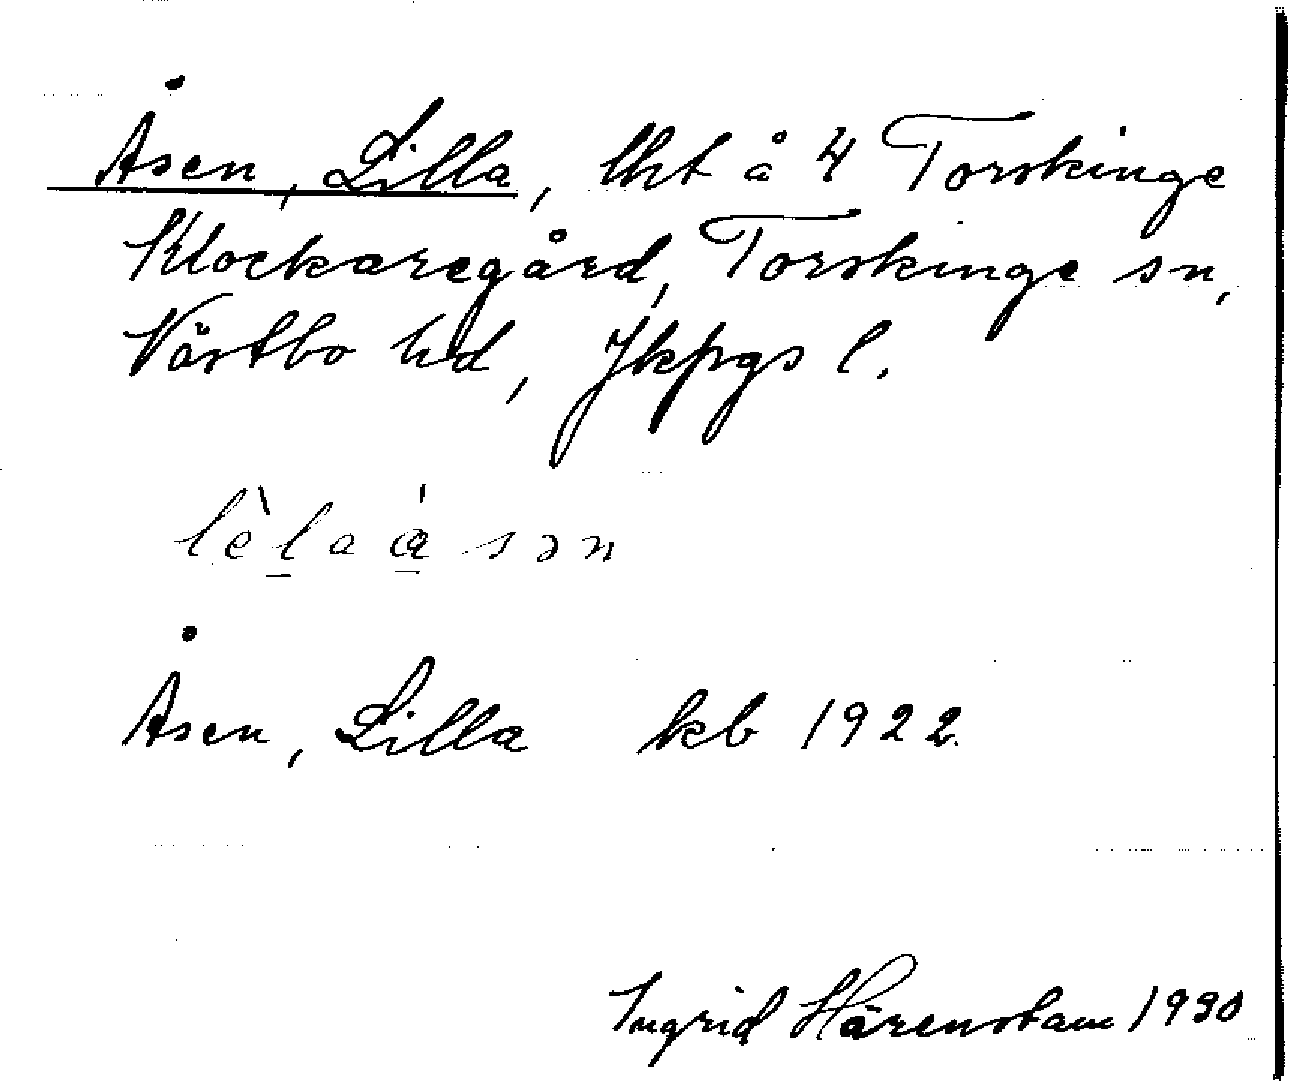 Åsen, Lilla, lht å 4 Torskinge
Klockaregård, Torskinge sn,
Västbo hd, Jkpgs l.
lèla ásən
Åsen, Lilla kb 1922.
Ingrid Härenstam 1930